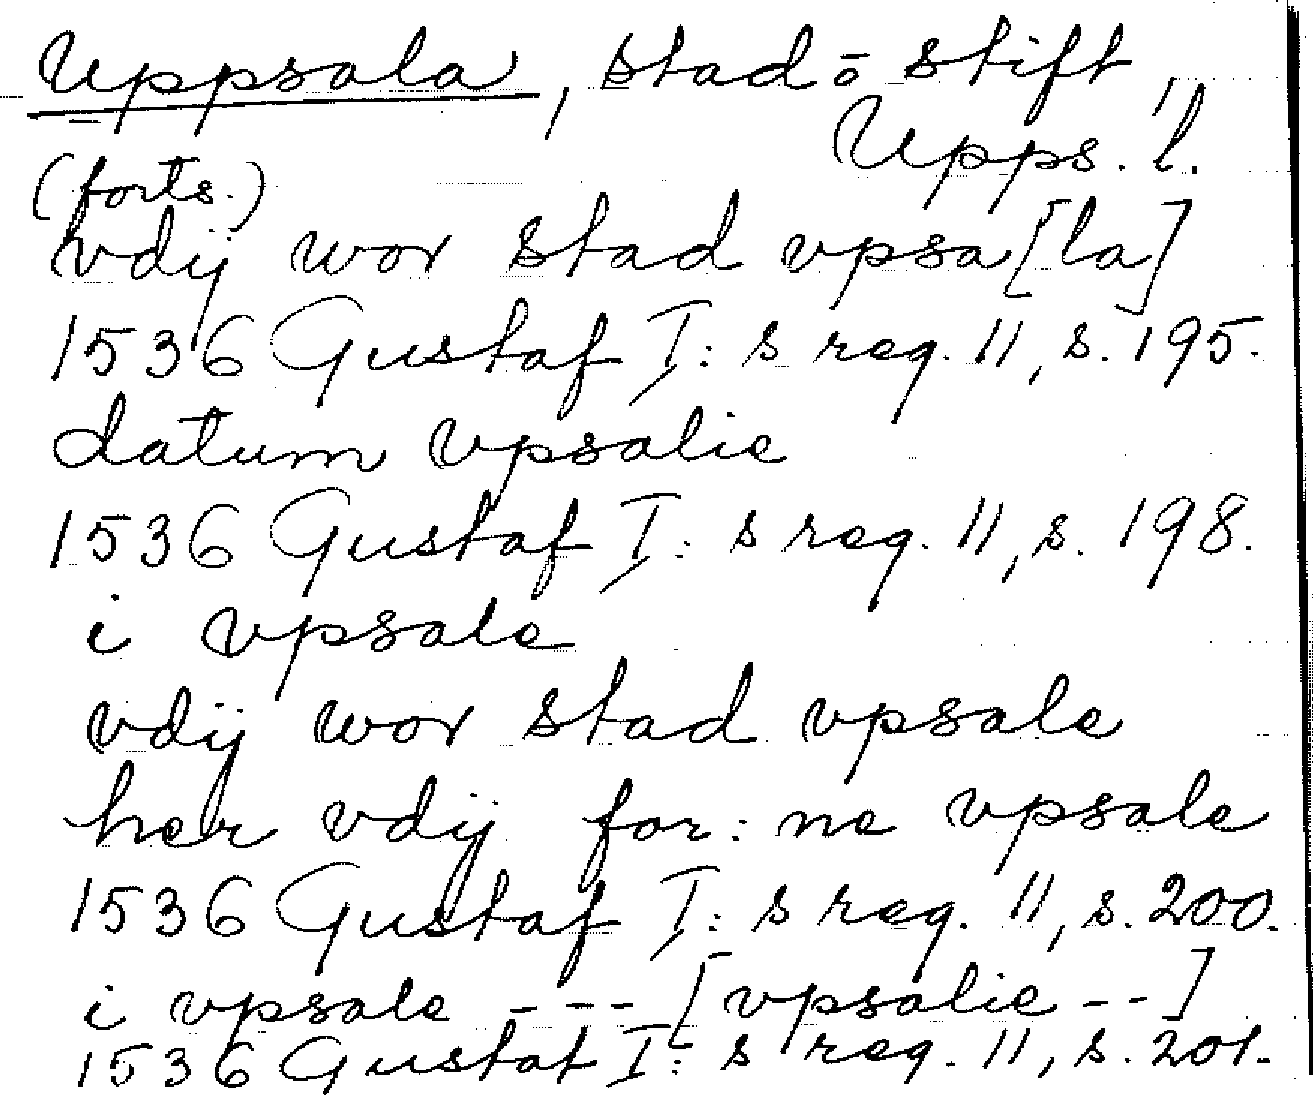 Uppsala, stad o stift,
Upps. l.
(forts.)
vdij wor stad vpsa[la]
1536 Gustaf I: s reg. 11, s. 195.
datum vpsalie
1536 Gustaf I: s reg. 11, s. 198.
i vpsale
vdij wor stad vpsale
her vdij for: ne vpsale
1536 Gustaf I: s reg. 11, s. 200.
i vpsale --- [vpsalie --]
1536 Gustaf I: s reg. 11, s. 201.